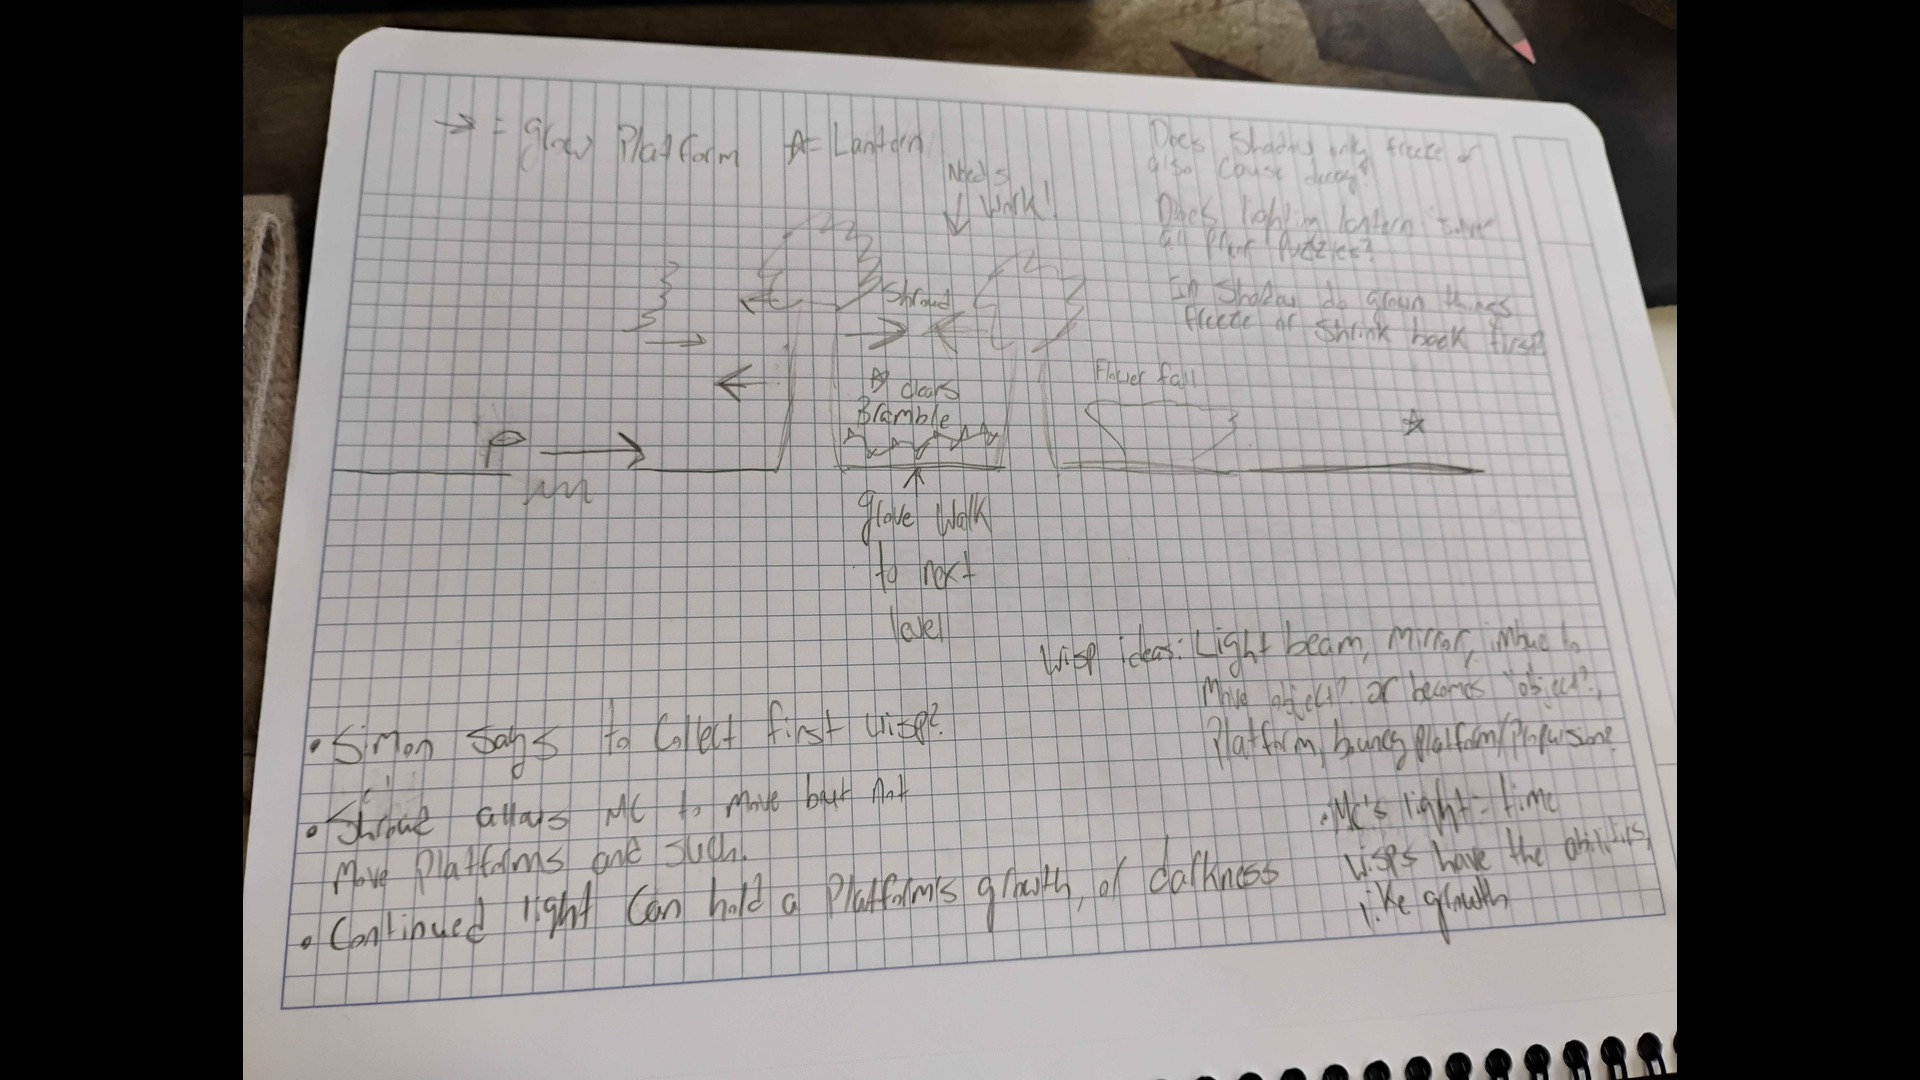 → = grow Platform ☆ = Lantern
Needs
Work!
Does Shadow only freeze or
also cause decay?
Does lighting lantern "solve"
all Plant Puzzles?
In Shadow do grown things
freeze or Shrink back first?
Shroud
☆ clears
Bramble
Flower fall
P
☆
glove walk
to next
level
Wisp ideas: Light beam, Mirror, imbue to
Move object? or becomes "object?",
Platform, bouncy Platform/Propulsion?
• Simon Says to Collect first wisp?
• Shroud allows MC to move but not
Move Platforms and such.
• Continued light Can hold a Platform's growth, or darkness
• MC's light = time
Wisps have the abilities,
like growth